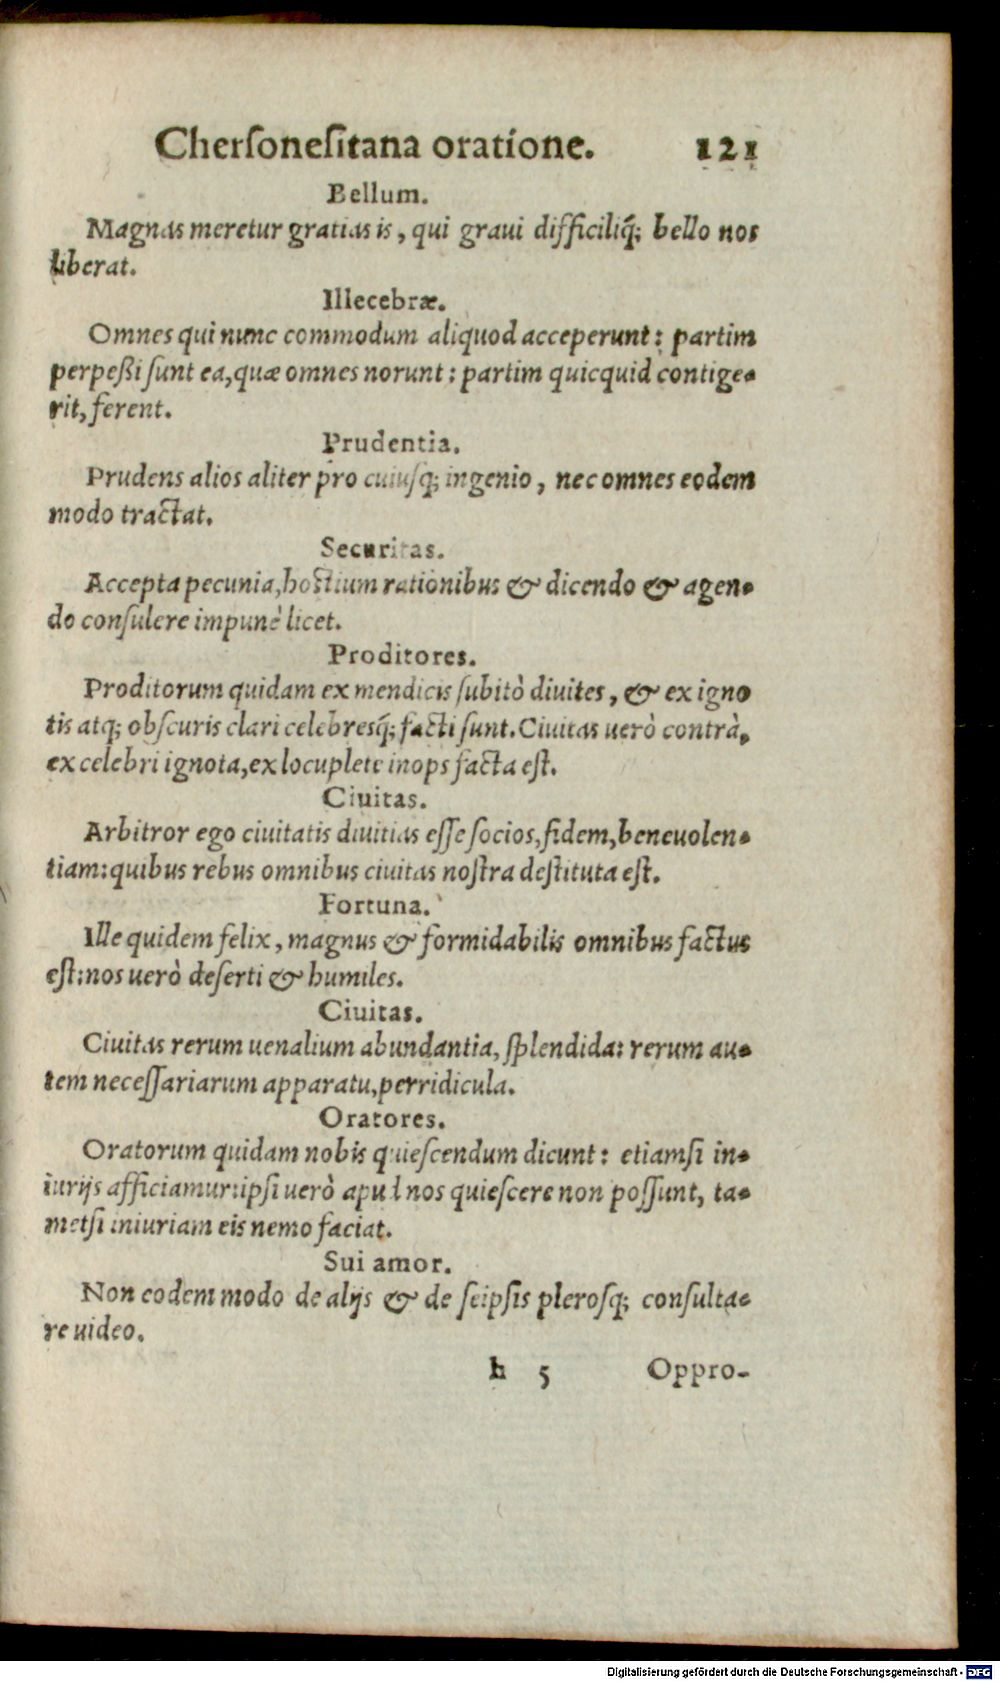 Cherſoneſitana oratione. 121
Bellum.
Magnas meretur gratias is, qui graui difficiliq́; bello nos
liberat.
Illecebræ.
Omnes qui nunc commodum aliquod acceperunt: partim
perpeßi ſunt ea, quæ omnes norunt: partim quicquid contige-
rit, ferent.
Prudentia.
Prudens alios aliter pro cuiuſq; ingenio, nec omnes eodem
modo tractat.
Securitas.
Accepta pecunia, hoſtium rationibus & dicendo & agen-
do conſulere impunè licet.
Proditores.
Proditorum quidam ex mendicis ſubitò diuites, & ex igno
tis atq; obſcuris clari celebresq́; facti ſunt. Ciuitas uerò contrà,
ex celebri ignota, ex locuplete inops facta eſt.
Ciuitas.
Arbitror ego ciuitatis diuitias eſſe ſocios, fidem, beneuolen-
tiam: quibus rebus omnibus ciuitas noſtra deſtituta eſt.
Fortuna.
Ille quidem felix, magnus & formidabilis omnibus factus
eſt: nos uerò deſerti & humiles.
Ciuitas.
Ciuitas rerum uenalium abundantia, ſplendida: rerum au-
tem neceſſariarum apparatu, perridicula.
Oratores.
Oratorum quidam nobis quieſcendum dicunt: etiamſi in-
iurijs afficiamur: ipſi uerò apud nos quieſcere non poſſunt, ta-
metſi iniuriam eis nemo faciat.
Sui amor.
Non eodem modo de alijs & de ſeipſis plerosq; conſulta-
re uideo.
h 5 Oppro-
Digitalisierung gefördert durch die Deutsche Forschungsgemeinschaft - DFG